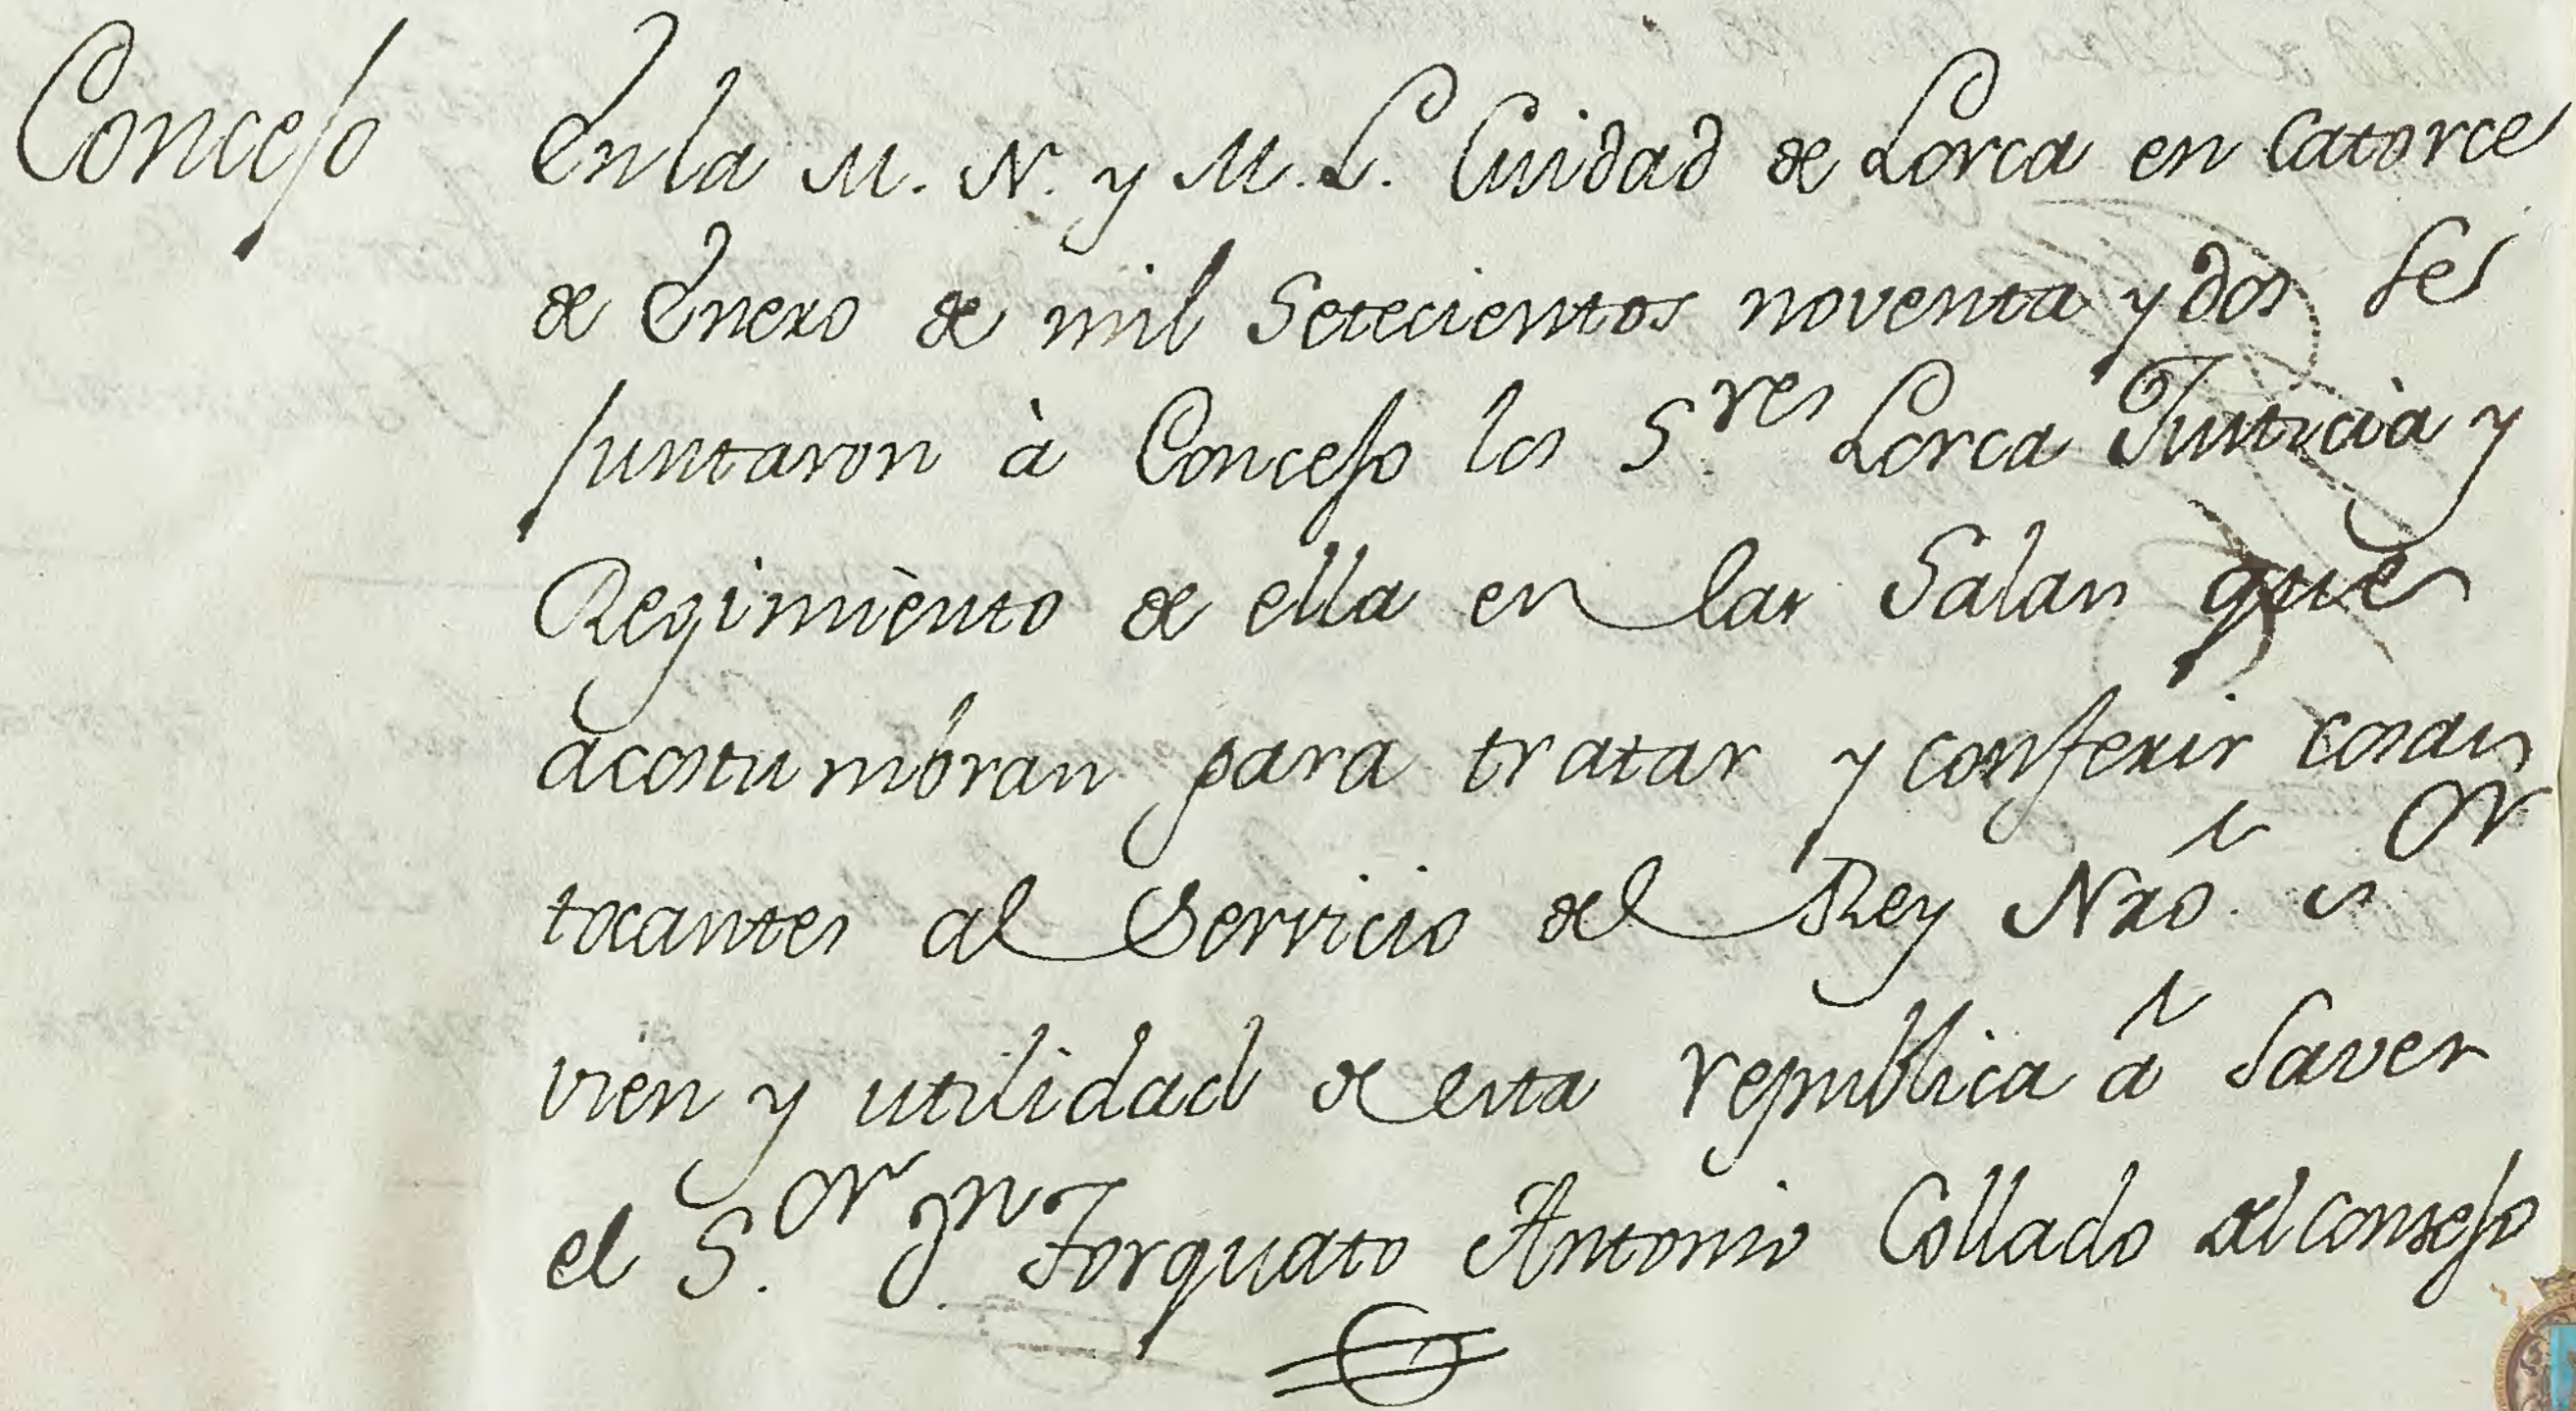 Concejo
En la M. N. y M. L. Ciudad de Lorca en Catorce
de Enero de mil Setecientos noventa y dos Se
juntaron à Concejo los S.res Lorca Justicià y
Regimiènto de ella en las Salas que
acostumbran para tratar y conferir cosas
tocantes al Servicio del Rey Nrõ. S.or
vien y utilidad de esta republica ã Saver
el S.or Dn. Torquato Antonio Collado del consejo